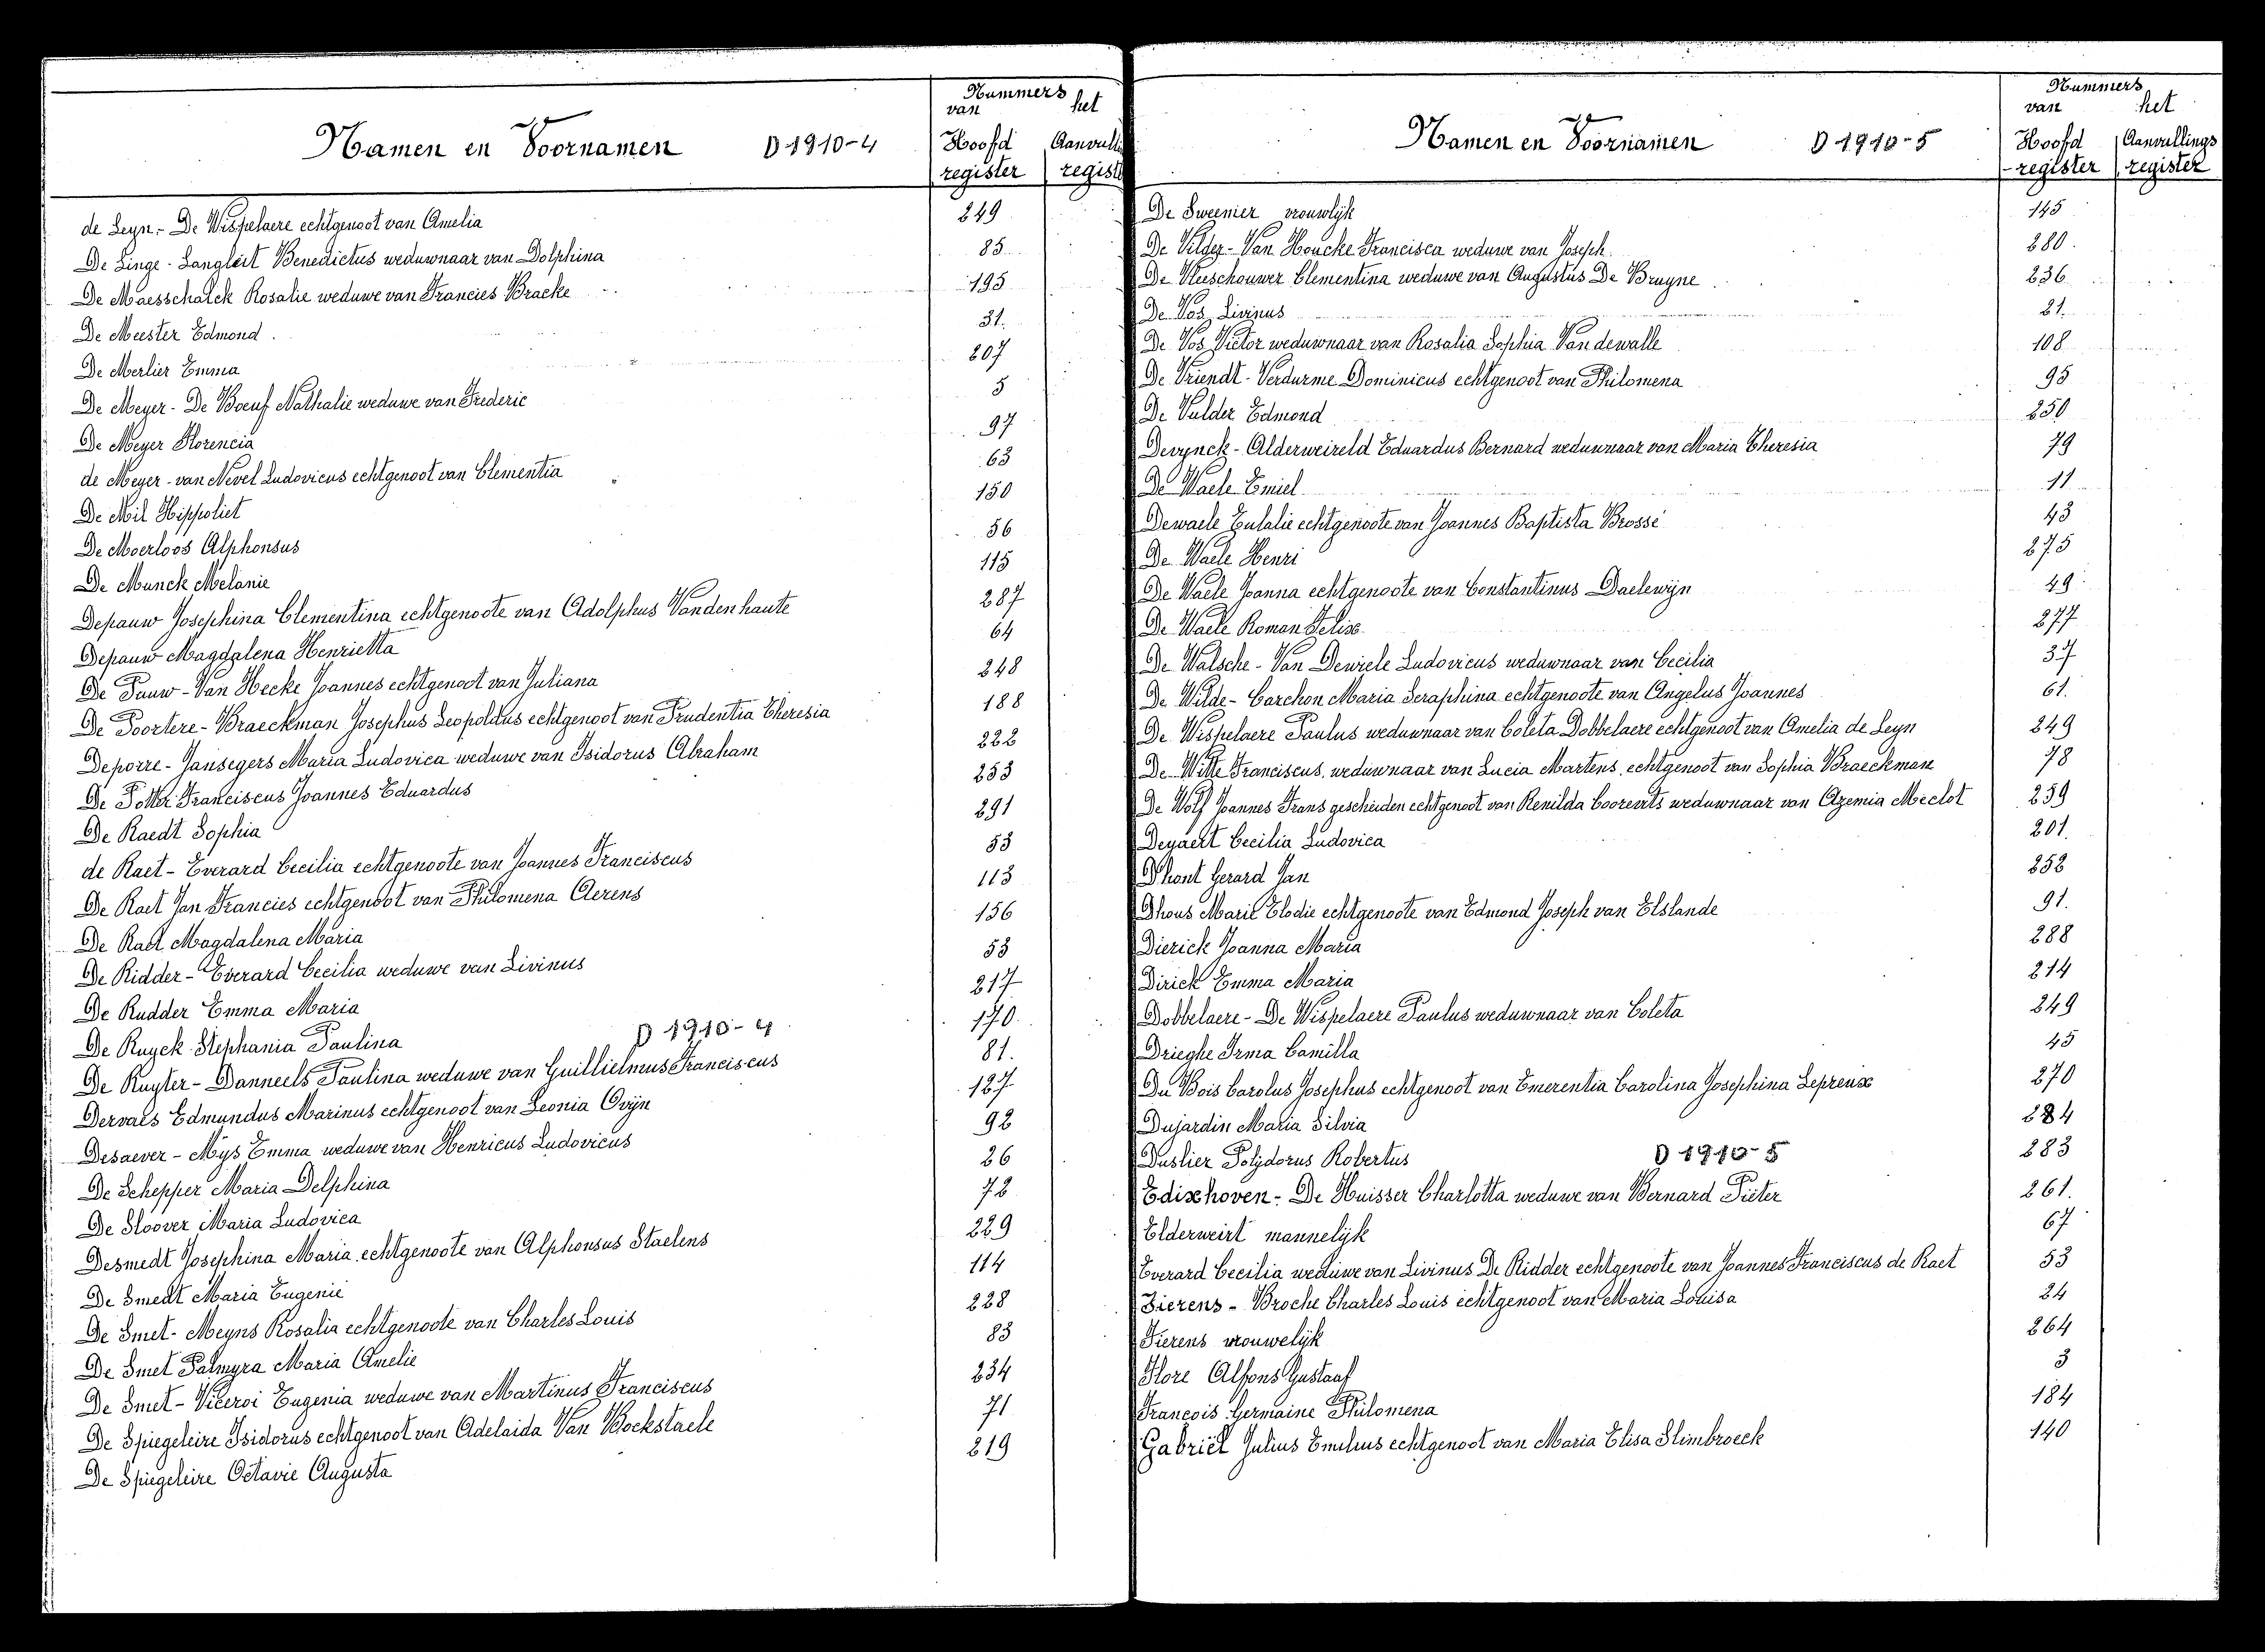 Nummers
van het
Namen en Voornamen D 1910-4 Hoofd Aanvull
register regist
de Leyn - De Wispelaere echtgenoot van Amelia 249
De Linge - Langleit Benedictus weduwnaar van Dolphina 85
De Maesschalck Rosalie weduwe van Francies Bracke 195
De Meester Edmond 31
De Merlier Emma 207
De Meyer - De Boeuf Nathalie weduwe van Frederic 5
De Meyer Florencia 97
de Meyer - van Nevel Ludovicus echtgenoot van Clementia 63
De Mil Hippoliet 150
De Moerloos Alphonsus 56
De Munck Melanie 115
Depauw Josephina Clementina echtgenoote van Adolphus Vandenhaute 287
Depauw Magdalena Henrietta 64
De Pauw - Van Hecke Joannes echtgenoot van Juliana 248
De Poortere - Braeckman Josephus Leopoldus echtgenoot van Prudentia Theresia 188
Deporre - Jansegers Maria Ludovica weduwe van Isidorus Abraham 222
De Potter Franciscus Joannes Eduardus 253
De Raedt Sophia 291
de Raet - Everard Cecilia echtgenoote van Joannes Franciscus 53
De Raet Jan Francies echtgenoot van Philomena Aerens 113
De Raet Magdalena Maria 156
De Ridder - Everard Cecilia weduwe van Livinus 53
De Rudder Emma Maria 217
De Ruyck Stephania Paulina D 1910-4 170
De Ruyter - Danneels Paulina weduwe van Guillielmus Franciscus 81.
Dervaes Edmundus Marinus echtgenoot van Leonia Ovijn 127
Desaever - Mys Emma weduwe van Henricus Ludovicus 92
De Schepper Maria Delphina 26
De Sloover Maria Ludovica 72
Desmedt Josephina Maria echtgenoote van Alphonsus Staelens 229
De Smedt Maria Eugenie 114
De Smet - Meyns Rosalia echtgenoote van Charles Louis 228
De Smet Palmyra Maria Amelie 83
De Smet - Viceroi Eugenia weduwe van Martinus Franciscus 234
De Spiegeleire Isidorus echtgenoot van Adelaida Van Bockstaele 71
De Spiegeleire Octavie Augusta 219
Nummers
van het
Namen en Voornamen D 1910-5 Hoofd Aanvullings
-register register
De Sweemer vrouwlijk 145
De Vilder - Van Houcke Francisca weduwe van Joseph 280
De Vleeschouwer Clementina weduwe van Augustus De Bruyne 236
De Vos Livinus 21.
De Vos Victor weduwnaar van Rosalia Sophia Vandewalle 108
De Vriendt - Verdurme Dominicus echtgenoot van Philomena 95
De Vulder Edmond 250
Devynck - Alderweireld Eduardus Bernard weduwnaar van Maria Theresia 79
De Waele Emiel 11
Dewaele Eulalie echtgenoote van Joannes Baptista Brossé 43
De Waele Henri 275
De Waele Joanna echtgenoote van Constantinus Daelewijn 49
De Waele Roman Felix 277
De Walsche - Van Dewiele Ludovicus weduwnaar van Cecilia 37
De Wilde - Carchon Maria Seraphina echtgenoote van Angelus Joannes 61.
De Wispelaere Paulus weduwnaar van Coleta Dobbelaere echtgenoot van Amelia de Leyn 249
De Witte Franciscus weduwnaar van Lucia Martens echtgenoot van Sophia Braeckman 78
De Wolf Joannes Frans gescheiden echtgenoot van Renilda Coorevits weduwnaar van Azemia Meclot 259
Deyaert Cecilia Ludovica 201
D'hont Gerard Jan 252
Dhous Marie Elodie echtgenoote van Edmond Joseph van Elslande 91.
Dierick Joanna Maria 288
Dirick Emma Maria 214
Dobbelaere - De Wispelaere Paulus weduwnaar van Coleta 249
Drieghe Irma Camilla 45
Du Bois Carolus Josephus echtgenoot van Emerentia Carolina Josephina Lepreux 270
Dujardin Maria Silvia 284
Duslier Polydorus Robertus D 1910-5 283
Edixhoven - De Huisser Charlotta weduwe van Bernard Pieter 261.
Elderweirt mannelijk 67
Everard Cecilia weduwe van Livinus De Ridder echtgenoote van Joannes Franciscus de Raet 53
Fierens - Broche Charles Louis echtgenoot van Maria Louisa 24
Fierens vrouwelijk 264
Flore Alfons Gustaaf 3
François Germaine Philomena 184
Gabriël Julius Emilius echtgenoot van Maria Elisa Slimbroeck 140